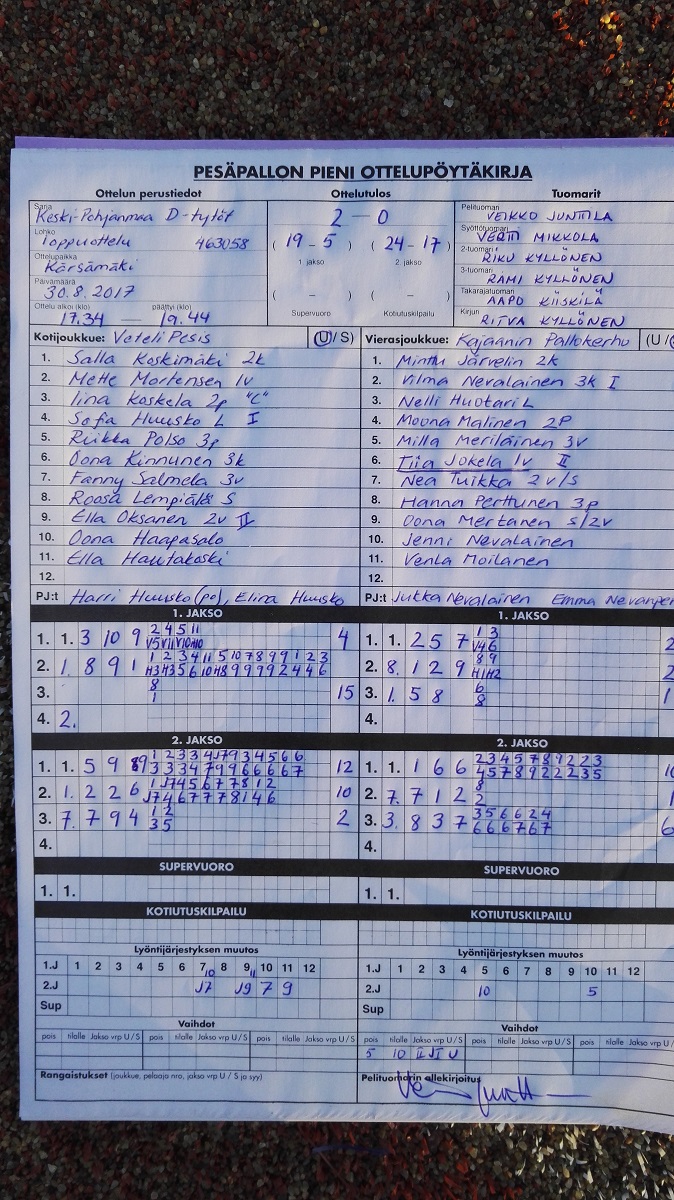 PESÄPALLON PIENI OTTELUPÖYTÄKIRJA
Ottelun perustiedot Ottelutulos Tuomarit
Sarja Keski-Pohjanmaa D-tytöt
Lohko Loppuottelu 463058
Ottelupaikka Kärsämäki
Päivämäärä 30.8.2017
Ottelu alkoi (klo) päättyi (klo)
17.34 — 19.44
2 - 0
( 19 - 5 ) ( 24 - 17 )
1. jakso 2. jakso
( - ) ( - )
Supervuoro Kotiutuskilpailu
Pelituomari VEIKKO JUNTTILA
Syöttötuomari VERTTI MIKKOLA
2-tuomari RIKU KYLLÖNEN
3-tuomari RAMI KYLLÖNEN
Takarajatuomari AAPO KIISKILÄ
Kirjuri RITVA KYLLÖNEN
Kotijoukkue: Veteli Pesis (U/S)
1. Salla Koskimäki 2k
2. Mette Mortensen 1v
3. Iina Koskela 2p "C"
4. Sofia Huusko L I
5. Riikka Polso 3p
6. Oona Kinnunen 3k
7. Fanny Salmela 3v
8. Roosa Lempiälä S
9. Ella Oksanen 2v II
10. Oona Haapasalo
11. Ella Hautakoski
12.
PJ:t Harri Huusko (po), Elina Huusko
Vierasjoukkue: Kajaanin Pallokerho (U/
1. Minttu Järvelin 2k
2. Vilma Nevalainen 3k I
3. Nelli Huotari L
4. Moona Malinen 2P
5. Milla Meriläinen 3v
6. Tiia Jokela 1v II
7. Nea Tuikka 2v/s
8. Hanna Perttunen 3p
9. Oona Mertanen S/2v
10. Jenni Nevalainen
11. Venla Moilanen
12.
PJ:t Jukka Nevalainen Emma Nevanper
1. JAKSO
1. 1. 3 10 9 2 4 5 11 4
2. 1. 8 9 1 1 2 3 4 11 5 10 7 8 9 9 1 2 3
3. 8 1 15
4. 2.
1. JAKSO
1. 1. 2 5 7 1 3 2
2. 8. 1 2 9 8 9 2
H1 H2
3. 1. 5 8 6 8 1
4.
2. JAKSO
1. 1. 5 9 8 12
3 3 3 4 7 9 9 6 6 6 6 7
2. 1. 2 2 6 10
J7 4 6 7 7 7 8 1 4 6
3. 7. 7 9 4 1 2 2
3 5
4.
2. JAKSO
1. 1. 1 6 6 2 3 4 5 7 8 9 2 2 3
4 5 7 8 9 2 2 2 3 5
2. 7. 7 1 2 8 1
2
3. 3. 8 3 7 3 5 6 6 2 4 6
6 6 6 7 6 7
4.
SUPERVUORO
1. 1.
SUPERVUORO
1. 1.
KOTIUTUSKILPAILU
KOTIUTUSKILPAILU
Lyöntijärjestyksen muutos
1.J 1 2 3 4 5 6 7 8 9 10 11 12
10 11
2.J J7 J9 7 9
Sup
Lyöntijärjestyksen muutos
1.J 1 2 3 4 5 6 7 8 9 10 11 12
2.J 10 5
Sup
Vaihdot
pois tilalle Jakso vrp U/S pois tilalle Jakso vrp U/S pois tilalle Jakso vrp U/S
Vaihdot
pois tilalle Jakso vrp U/S pois tilalle Jakso vrp U/S pois tilalle Jakso vrp U/S
5 10 II JI U
Rangaistukset (joukkue, pelaaja nro, jakso vrp U / S ja syy)
Pelituomarin allekirjoitus